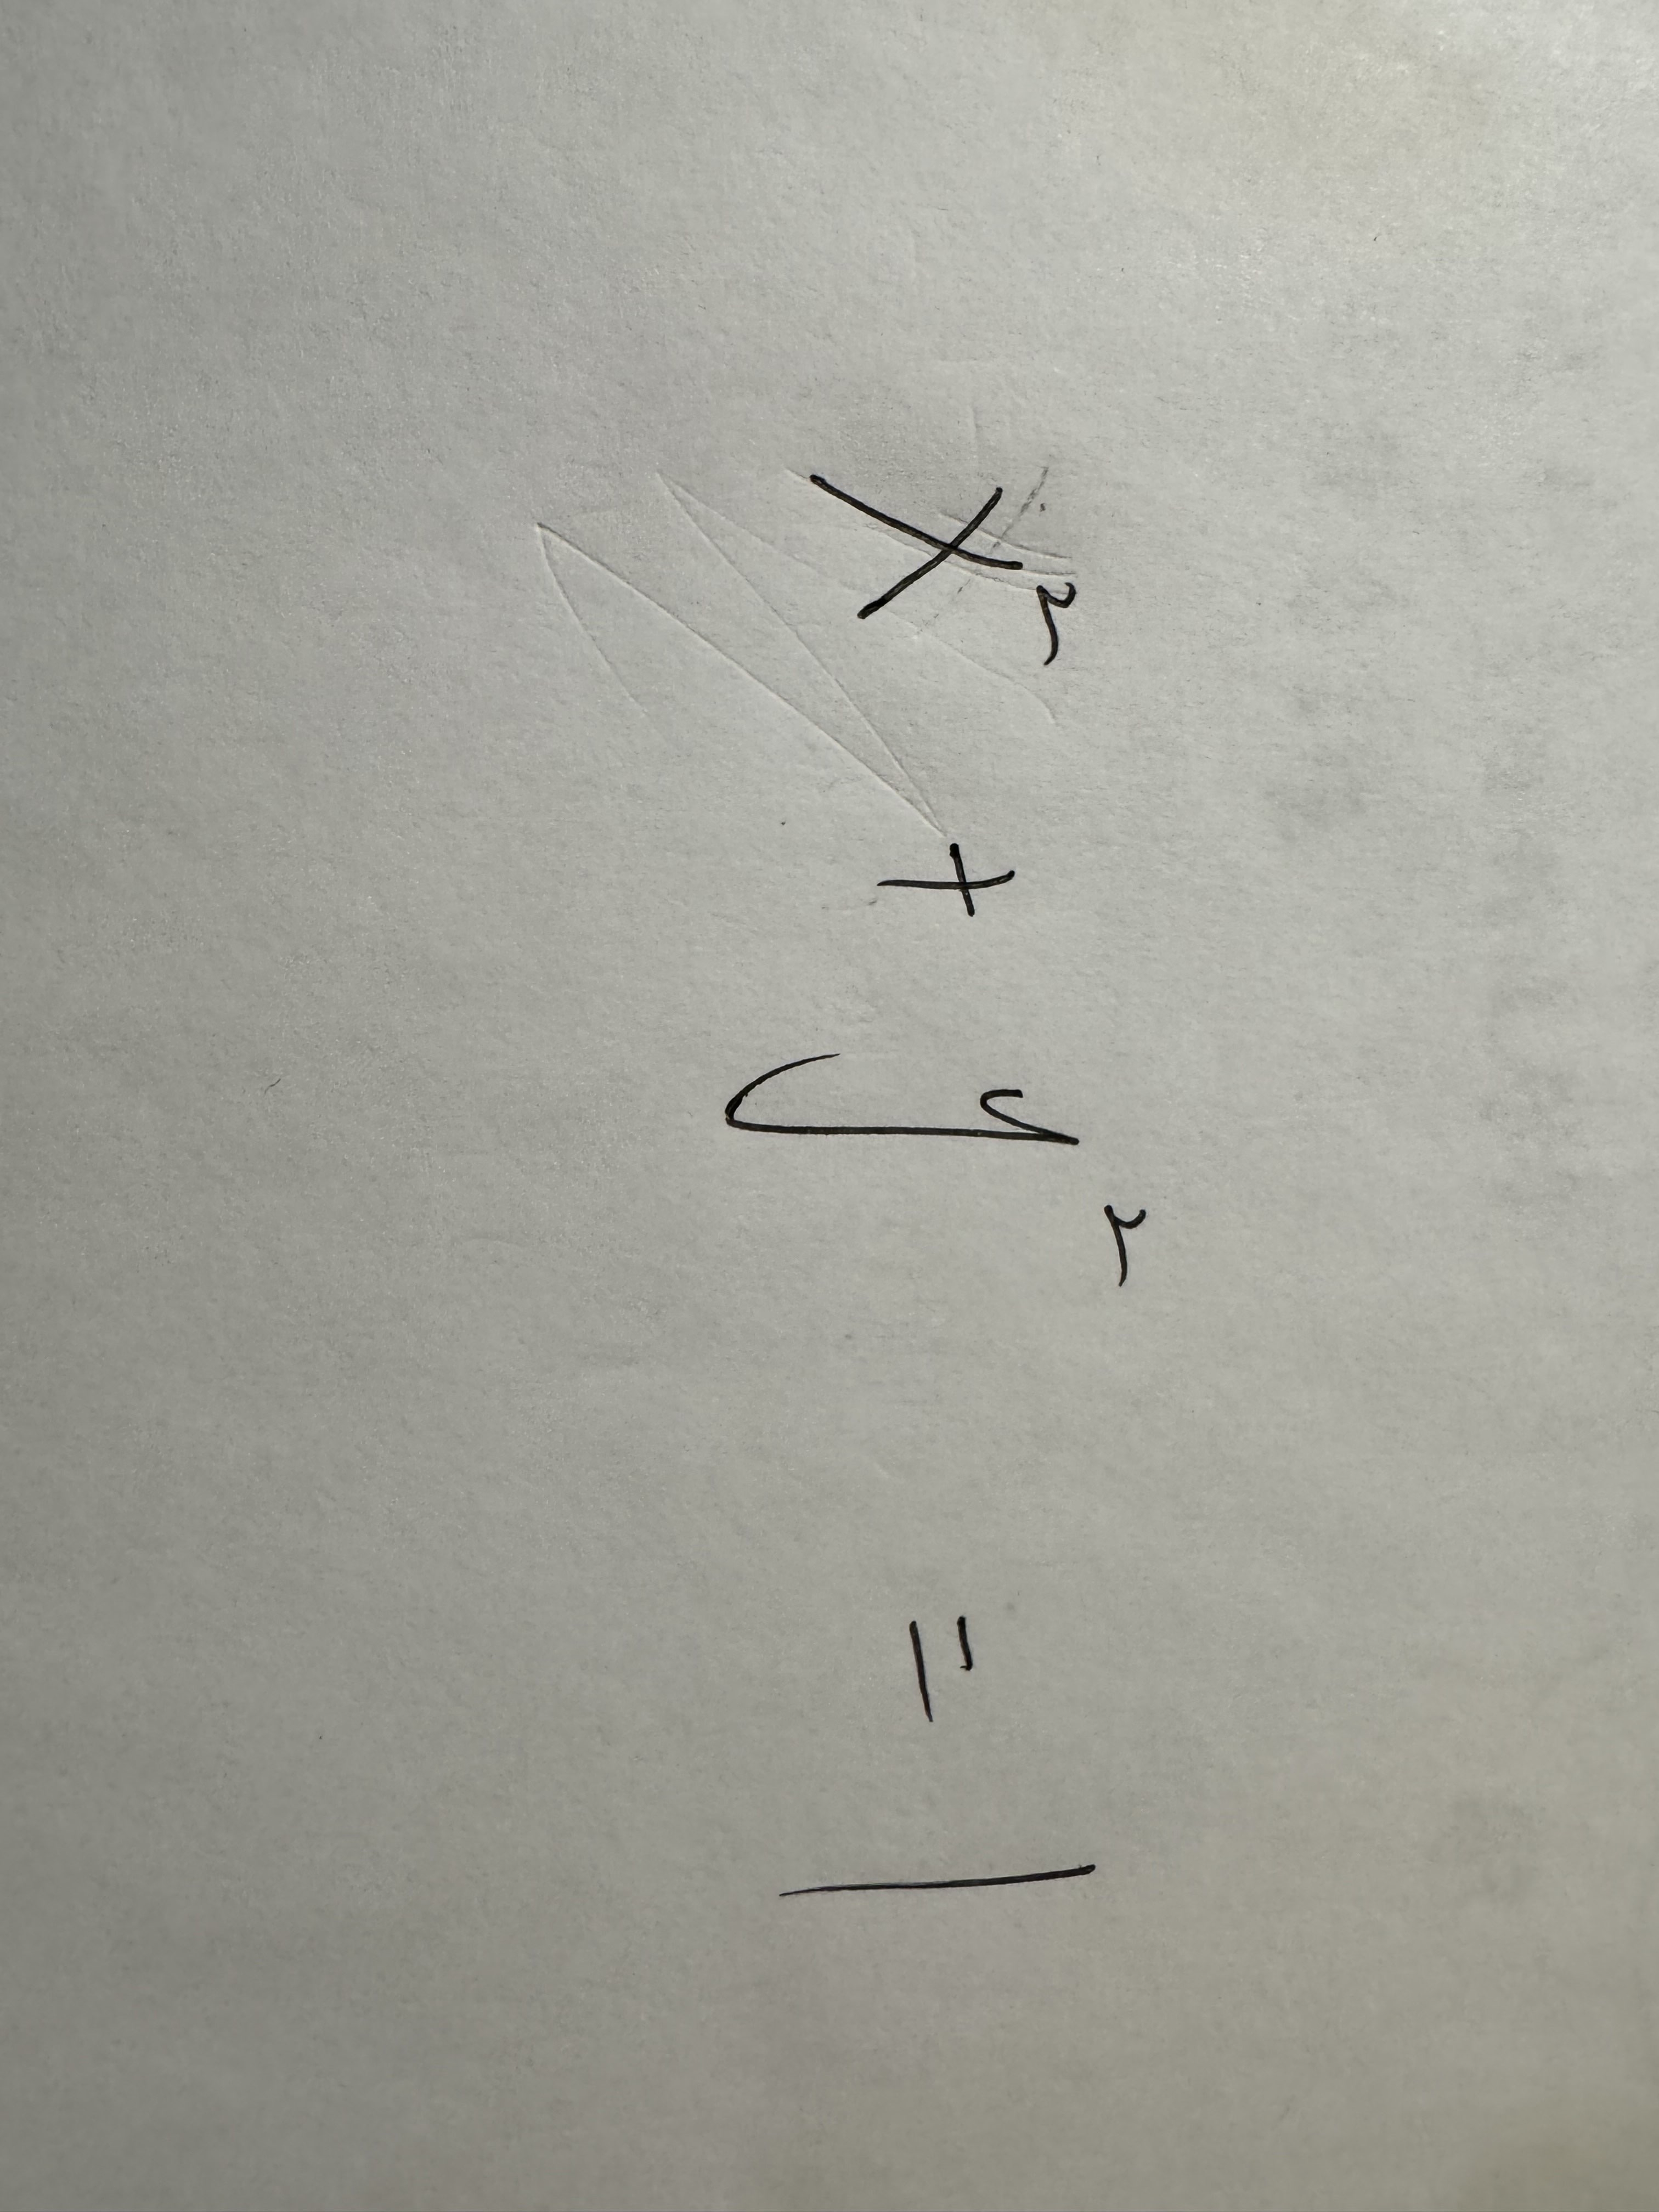 x² + y² = 1